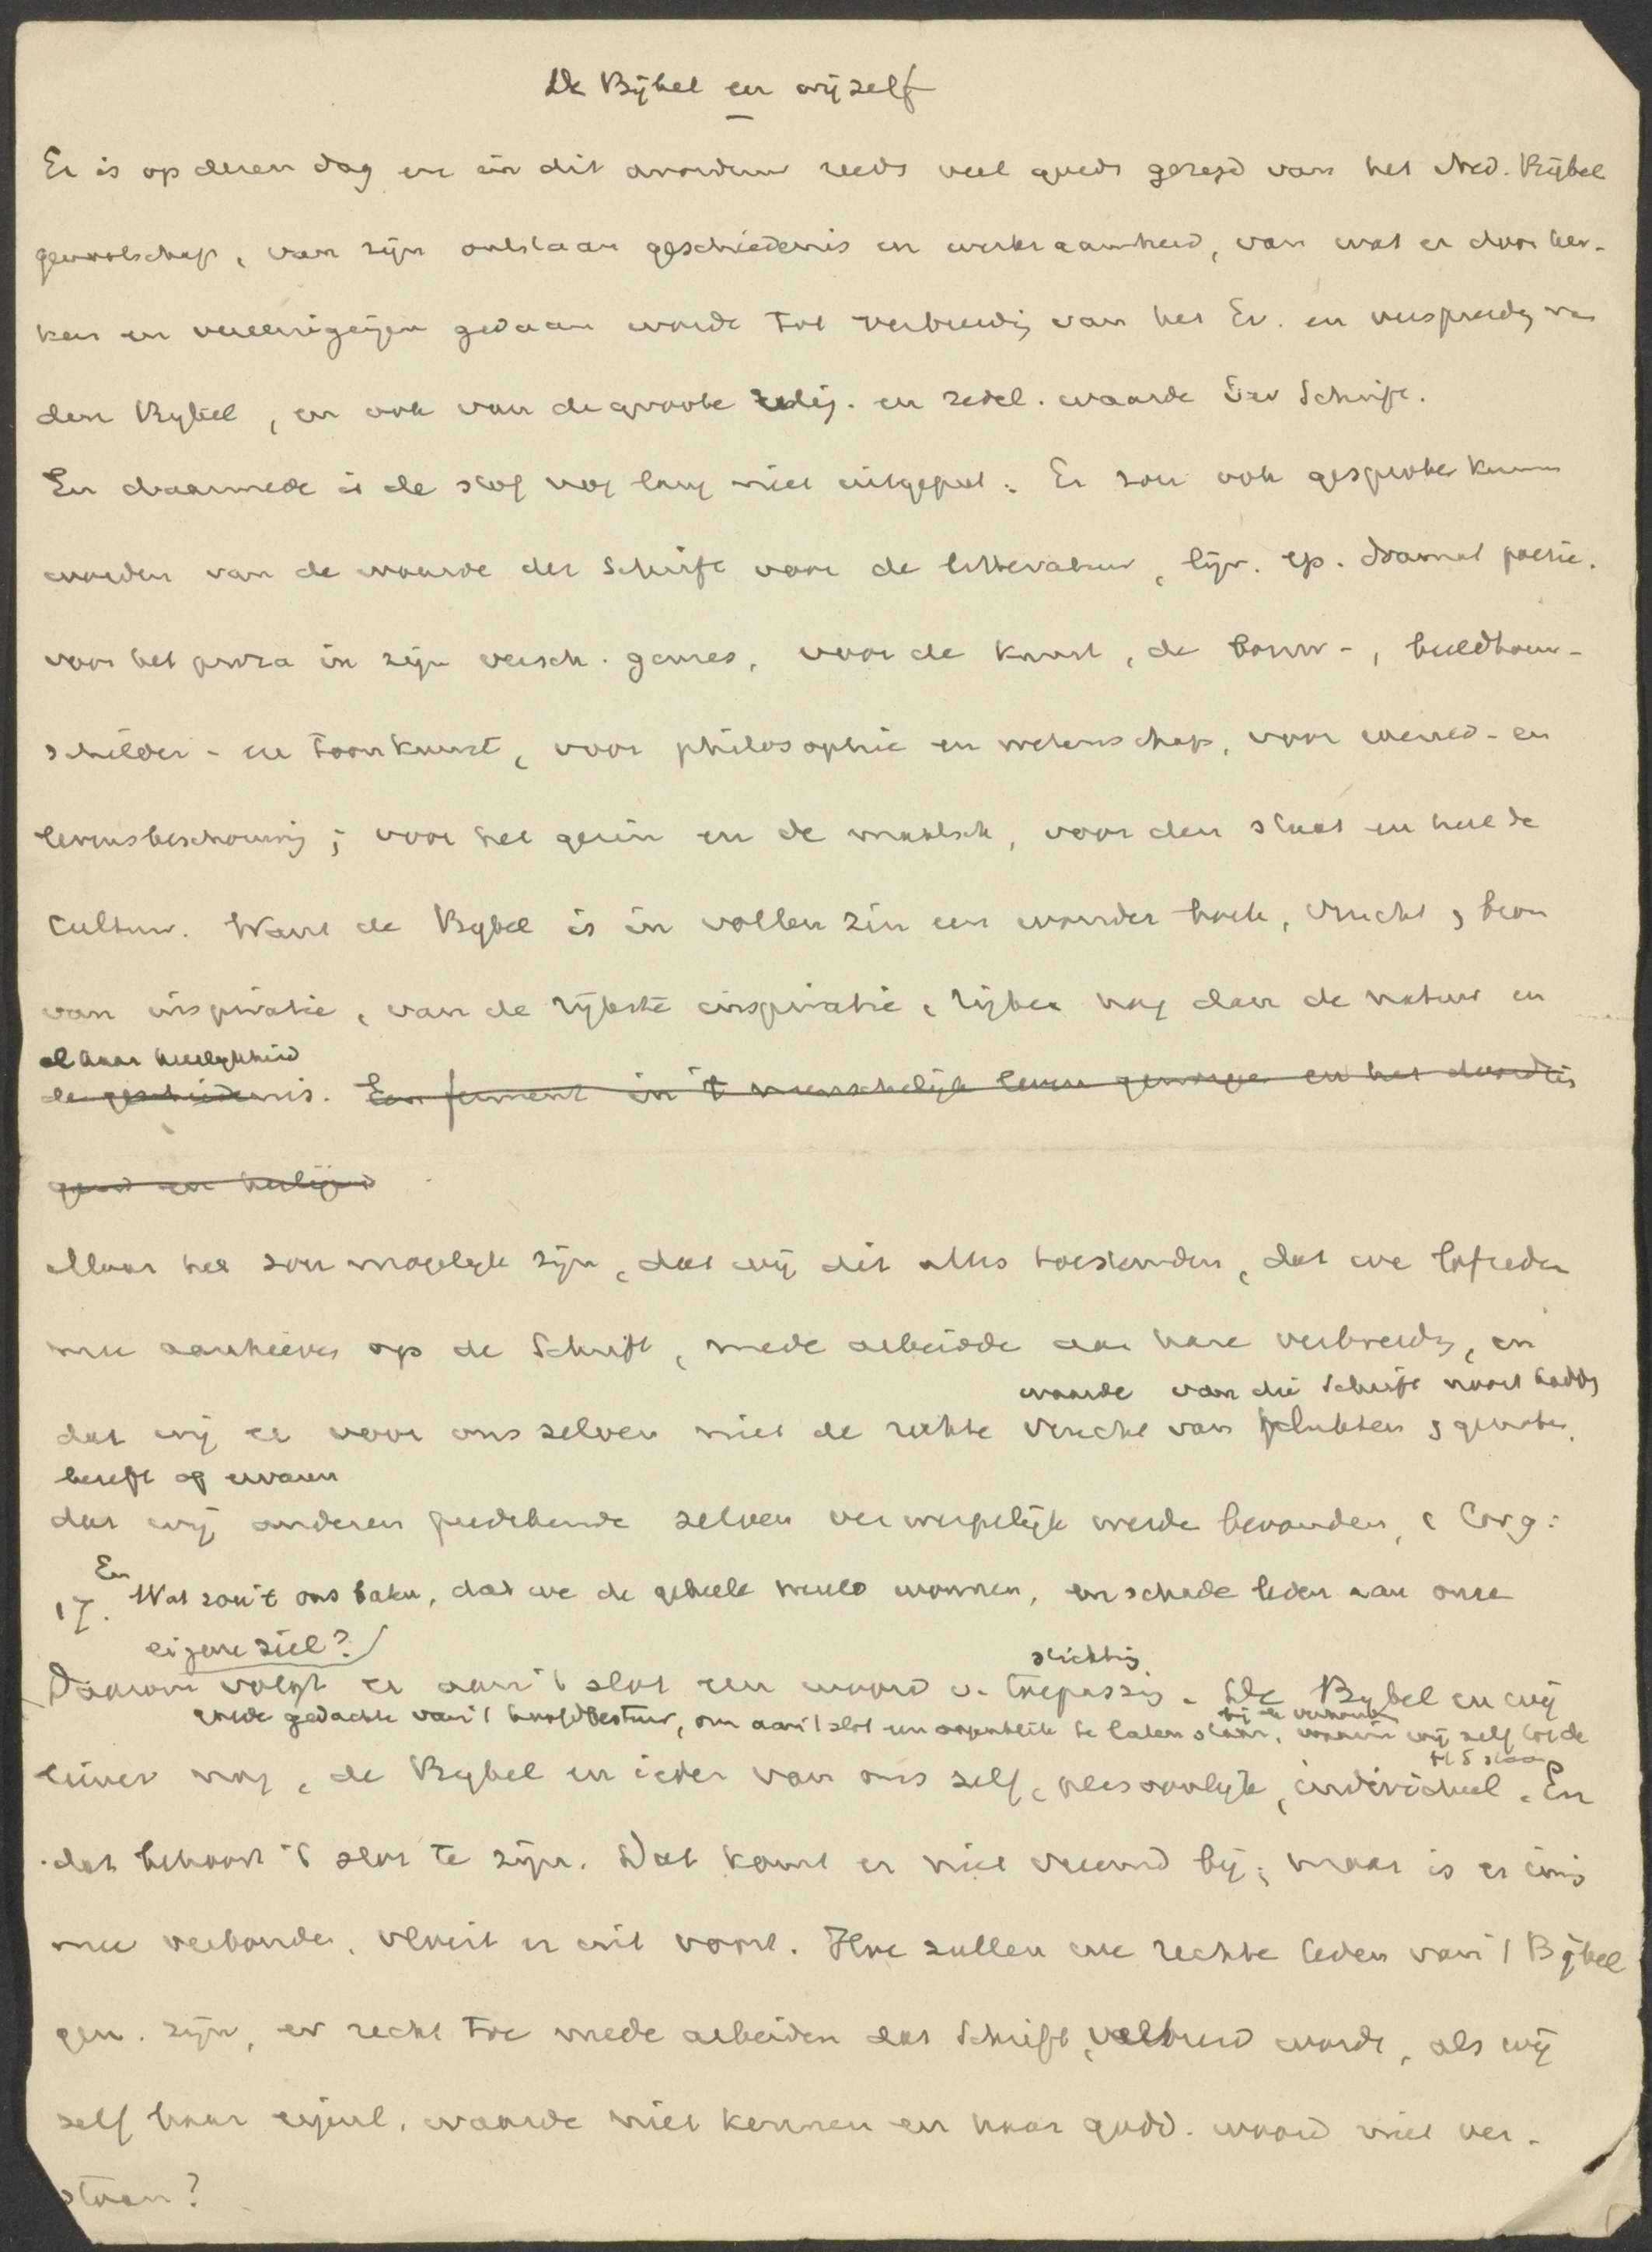 De Bijbel en wijzelf
Er is op dezen dag en in dit avonduur reeds veel goeds gezegd van het Ned. Bijbel
genootschap, van zijn ontstaan geschiedenis en werkzaamheid, van wat er door ker-
ken en vereenigingen gedaan wordt tot verbreiding van het Ev. en verspreidg van
den Bybel, en ook van de groote relig. en zedel. waarde der Schrift.
En daarmede is de stof nog lang niet uitgeput. Er zou ook gesproken kunnen
worden van de waarde der Schrift voor de litteratuur, lyr. ep. dramat poezie.
voor het proza in zijn versch. genres, voor de kunst, de bouw-, beeldhouw-
schilder- en toonkunst, voor philosophie en wetenschap, voor wereld- en
levensbeschouwing; voor het gezin en de maatsch, voor den staat en heel de
Cultuur. Want de Bybel is in vollen zin een wonder boek, vrucht, bron
van inspiratie, van de rijkste inspiratie, rijker nog dan de natuur en
al haar heerlykheid
de geschiedenis. Een ferment in 't menschelijk leven geworpen en het
Maar het zou mogelyk zijn, dat wij dit alles toestemden, dat we lofreden
mee aanhieven op de Schrift, mede arbeidde aan hare verbreidg, en
waarde van die Schrift nooit hadden
dat wij er voor ons zelven niet de rechte vrucht van plukten, genoten,
beseft of ervaren
dat wij anderen predikende zelven verwerpelijk werden bevonden, 1 Cor 9:
17. En Wat zou 't ons baten, dat we de geheele wereld wonnen, en schade leden aan onze
eigene ziel?
stichting
Daarom volgt er aan 't slot een woord v. toepassing. De Bybel en wij
goede gedachte van 't hoofdbestuur, om aan 't slot een oogenblik te laten staan, waarin wij zelf tot de
H S staan
liever nog, de Bybel en ieder van ons zelf, persoonlyk, individueel. En
dat behoort 't slot te zijn. Dat komt er niet vreemd bij; maar is er innig
mee verbonden, vloeit er uit voort. Hoe zullen we rechte leden van 't Bijbel
gen. zijn, er recht toe mede arbeiden dat Schrift verbreid wordt, als wij
zelf haar eigenl. waarde niet kennen en haar godd. woord niet ver-
staan?